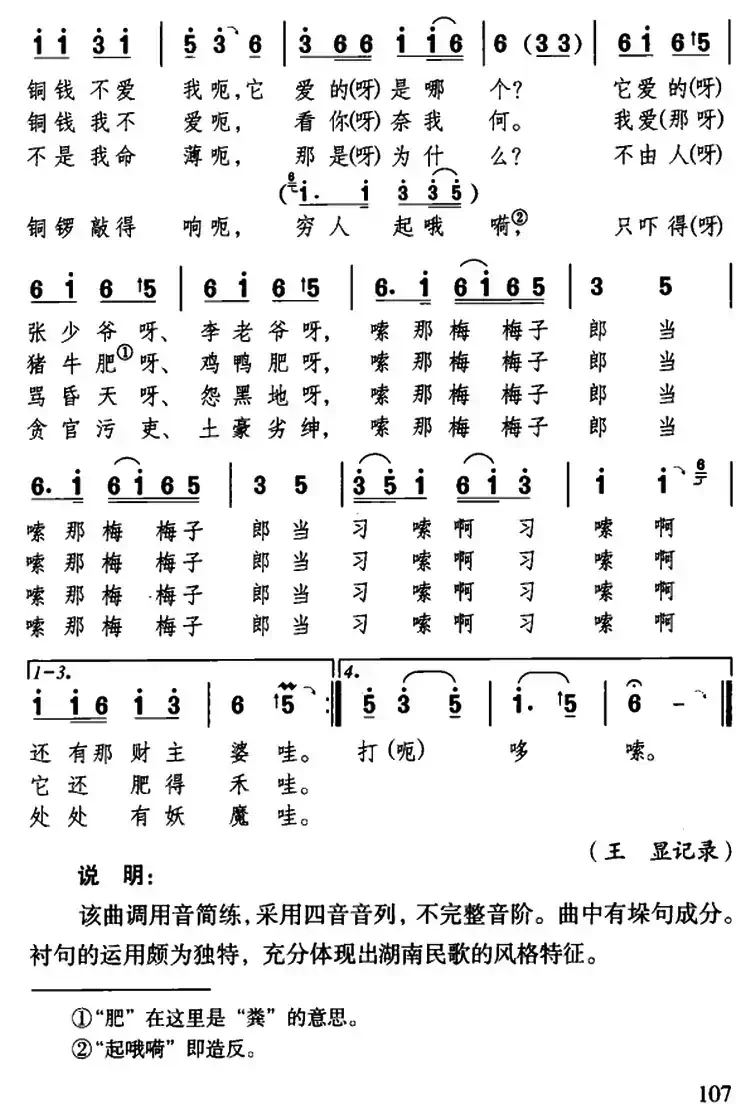 i i 3 i | 5 3 6 | 3 6 6 i i 6 | 6 (3 3) | 6 i 6 ↑5 |
铜钱 不爱 我呃,它 爱的(呀)是哪 个? 它爱的(呀)
铜钱 我不 爱呃, 看你(呀)奈我 何。 我爱(那呀)
不是 我命 薄呃, 那是(呀)为什 么? 不由人(呀)
(6 i. i 3 3 5)
铜锣 敲得 响呃, 穷人 起哦 嗬,② 只吓得(呀)
6 i 6 ↑5 | 6 i 6 ↑5 | 6. i 6 i 6 5 | 3 5 |
张少爷呀、 李老爷呀, 嗦那梅 梅子 郎 当
猪牛肥①呀、 鸡鸭肥呀, 嗦那梅 梅子 郎 当
骂昏天呀、 怨黑地呀, 嗦那梅 梅子 郎 当
贪官污吏、 土豪劣绅, 嗦那梅 梅子 郎 当
6. i 6 i 6 5 | 3 5 | 3 5 i 6 i 3 | i i 6
嗦那梅 梅子 郎当 习 嗦啊 习 嗦啊
嗦那梅 梅子 郎当 习 嗦啊 习 嗦啊
嗦那梅 梅子 郎当 习 嗦啊 习 嗦啊
嗦那梅 梅子 郎当 习 嗦啊 习 嗦啊
1-3. 4.
i i 6 i 3 | 6 ↑5 :‖ 5 3 5 | i. ↑5 | 6 - ‖
还有那 财主 婆哇。 打(呃) 哆 嗦。
它还 肥得 禾哇。
处处 有妖 魔哇。
(王 显记录)
说 明:
该曲调用音简练,采用四音音列,不完整音阶。曲中有垛句成分。
衬句的运用颇为独特,充分体现出湖南民歌的风格特征。
①“肥”在这里是“粪”的意思。
②“起哦嗬”即造反。
107